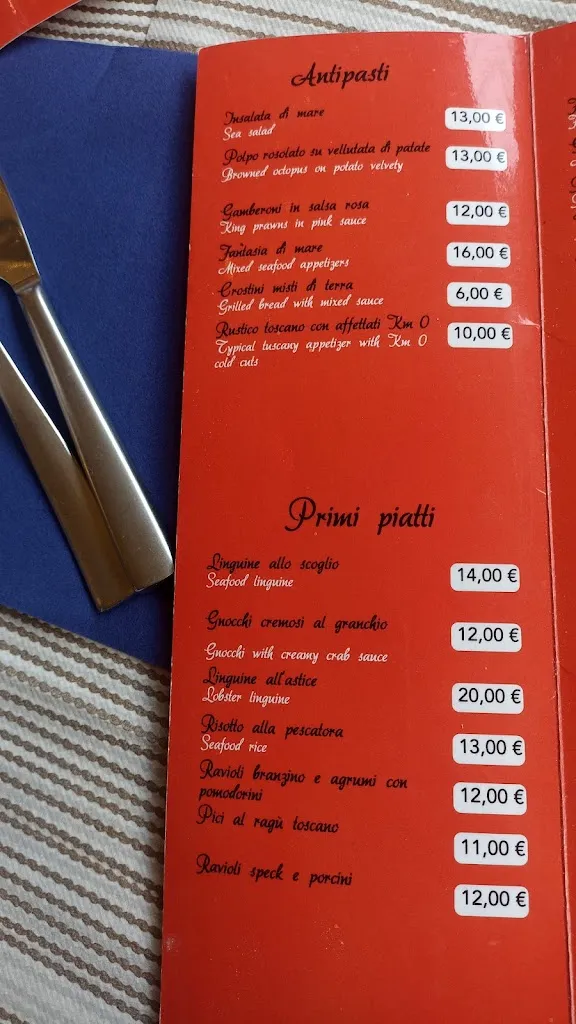 Antipasti
Insalata di mare 13,00 €
Sea salad
Polpo rosolato su vellutata di patate 13,00 €
Browned octopus on potato velvety
Gamberoni in salsa rosa 12,00 €
King prawns in pink sauce
Fantasia di mare 16,00 €
Mixed seafood appetizers
Crostini misti di terra 6,00 €
Grilled bread with mixed sauce
Rustico toscano con affettati Km 0 10,00 €
Typical tuscany appetizer with Km 0
cold cuts
Primi piatti
Linguine allo scoglio 14,00 €
Seafood linguine
Gnocchi cremosi al granchio 12,00 €
Gnocchi with creamy crab sauce
Linguine all'astice 20,00 €
Lobster linguine
Risotto alla pescatora 13,00 €
Seafood rice
Ravioli branzino e agrumi con 12,00 €
pomodorini
Pici al ragù toscano 11,00 €
Ravioli speck e porcini 12,00 €